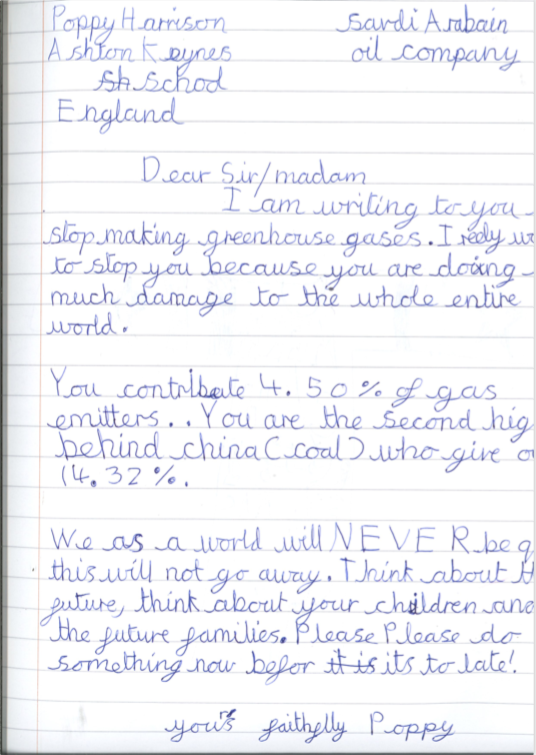 Poppy Harrison
Sardi Arabain
Ashton Keynes
oil company
School
England
Dear Sir/madam
I am writing to you
stop making greenhouse gases. I reely
to stop you because you are doing
much damage to the whole entire
world.
You contribate 4.50% of gas
emitters.. You are the second hig
behind china (coal) who give o
14.32%.
We as a world will NEVER be g
this will not go away. Think about
future, think about your children and
the future families. Please Please do
something now befor it is its to late!
yours faithfelly Poppy